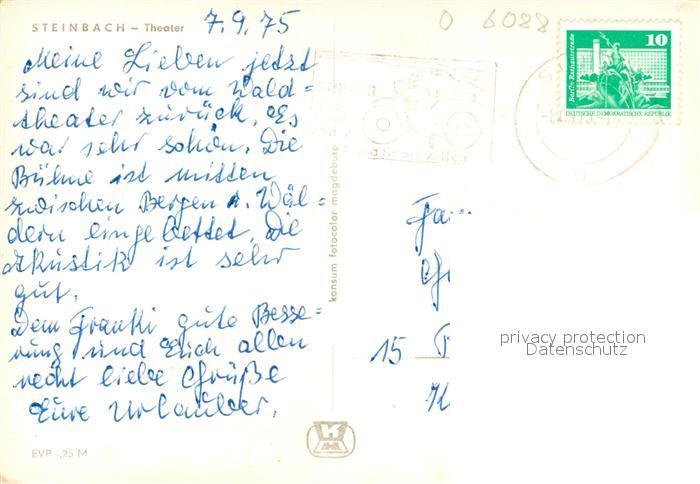 STEINBACH – Theater
7.9.75
O 6088
Meine Lieben jetzt
sind wir vom Wald-
theater zurück. Es
war sehr schön. Die
Bühne ist mitten
zwischen Bergen u. Wäl-
dern eingebettet. Die
Akustik ist sehr
gut.
Dem Franki gute Besse-
rung und Euch allen
recht liebe Grüße
Eure Urlauber.
EVP -,25 M
konsum fotocolor magdeburg
10
Berlin-Rathausstraße
DEUTSCHE DEMOKRATISCHE REPUBLIK
Fa
15
K
privacy protection
Datenschutz